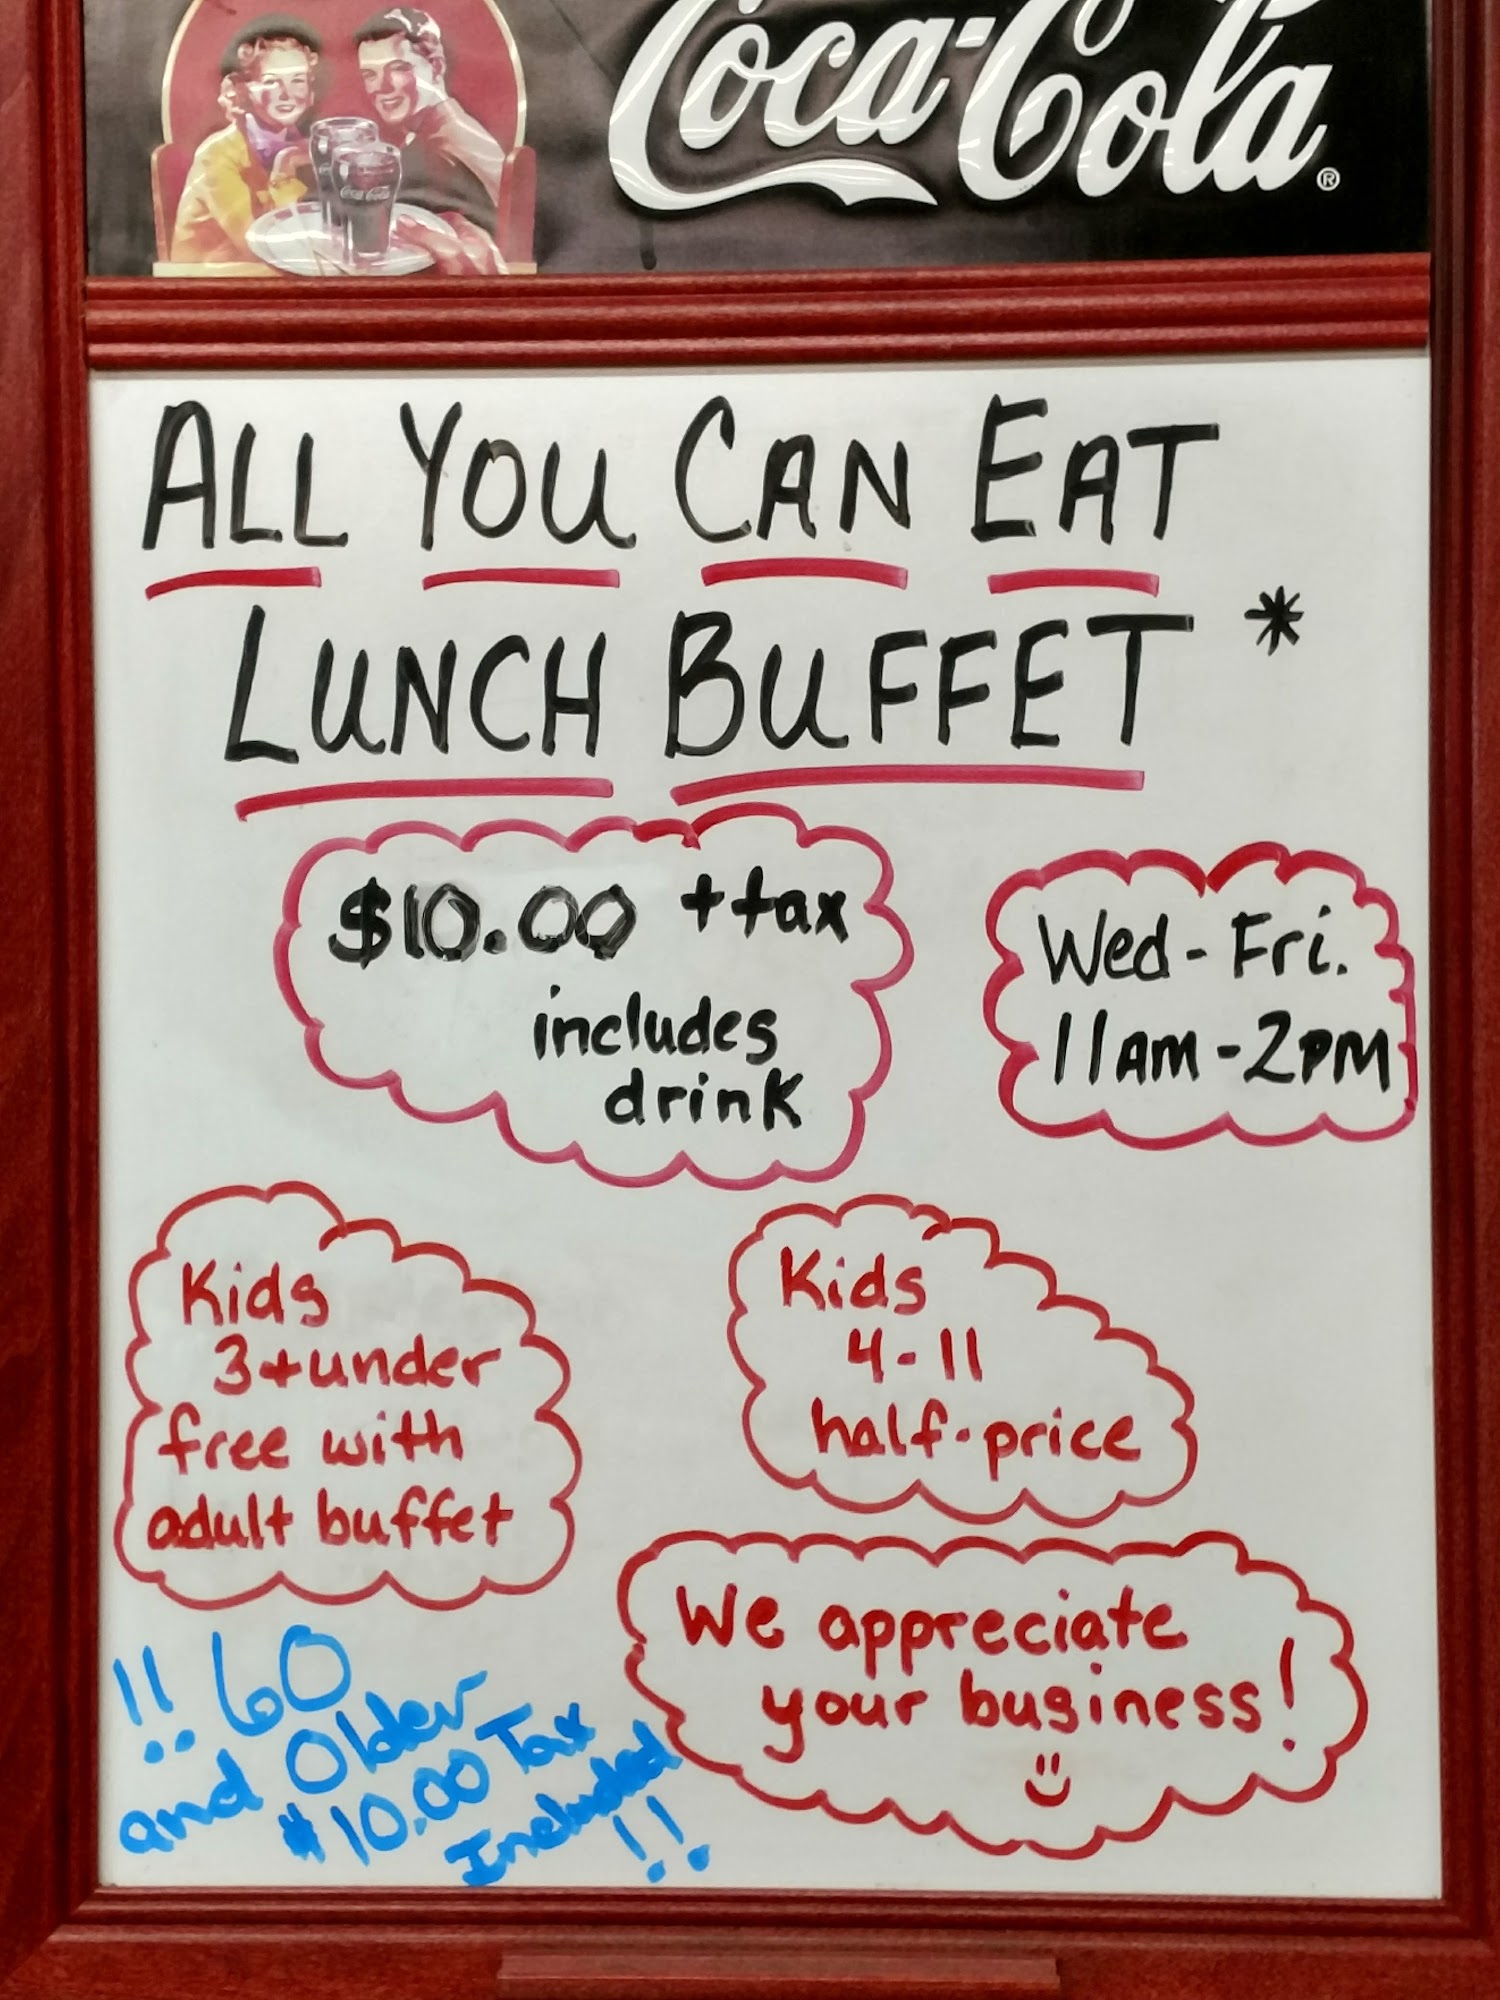 Coca-Cola®
Coca-Cola
ALL YOU CAN EAT
LUNCH BUFFET *
$10.00 + tax
includes
drink
Wed-Fri.
11AM-2PM
Kids
3+under
free with
adult buffet
Kids
4-11
half-price
We appreciate
your business!
!! 60
and Older
$10.00 Tax
Included
!!